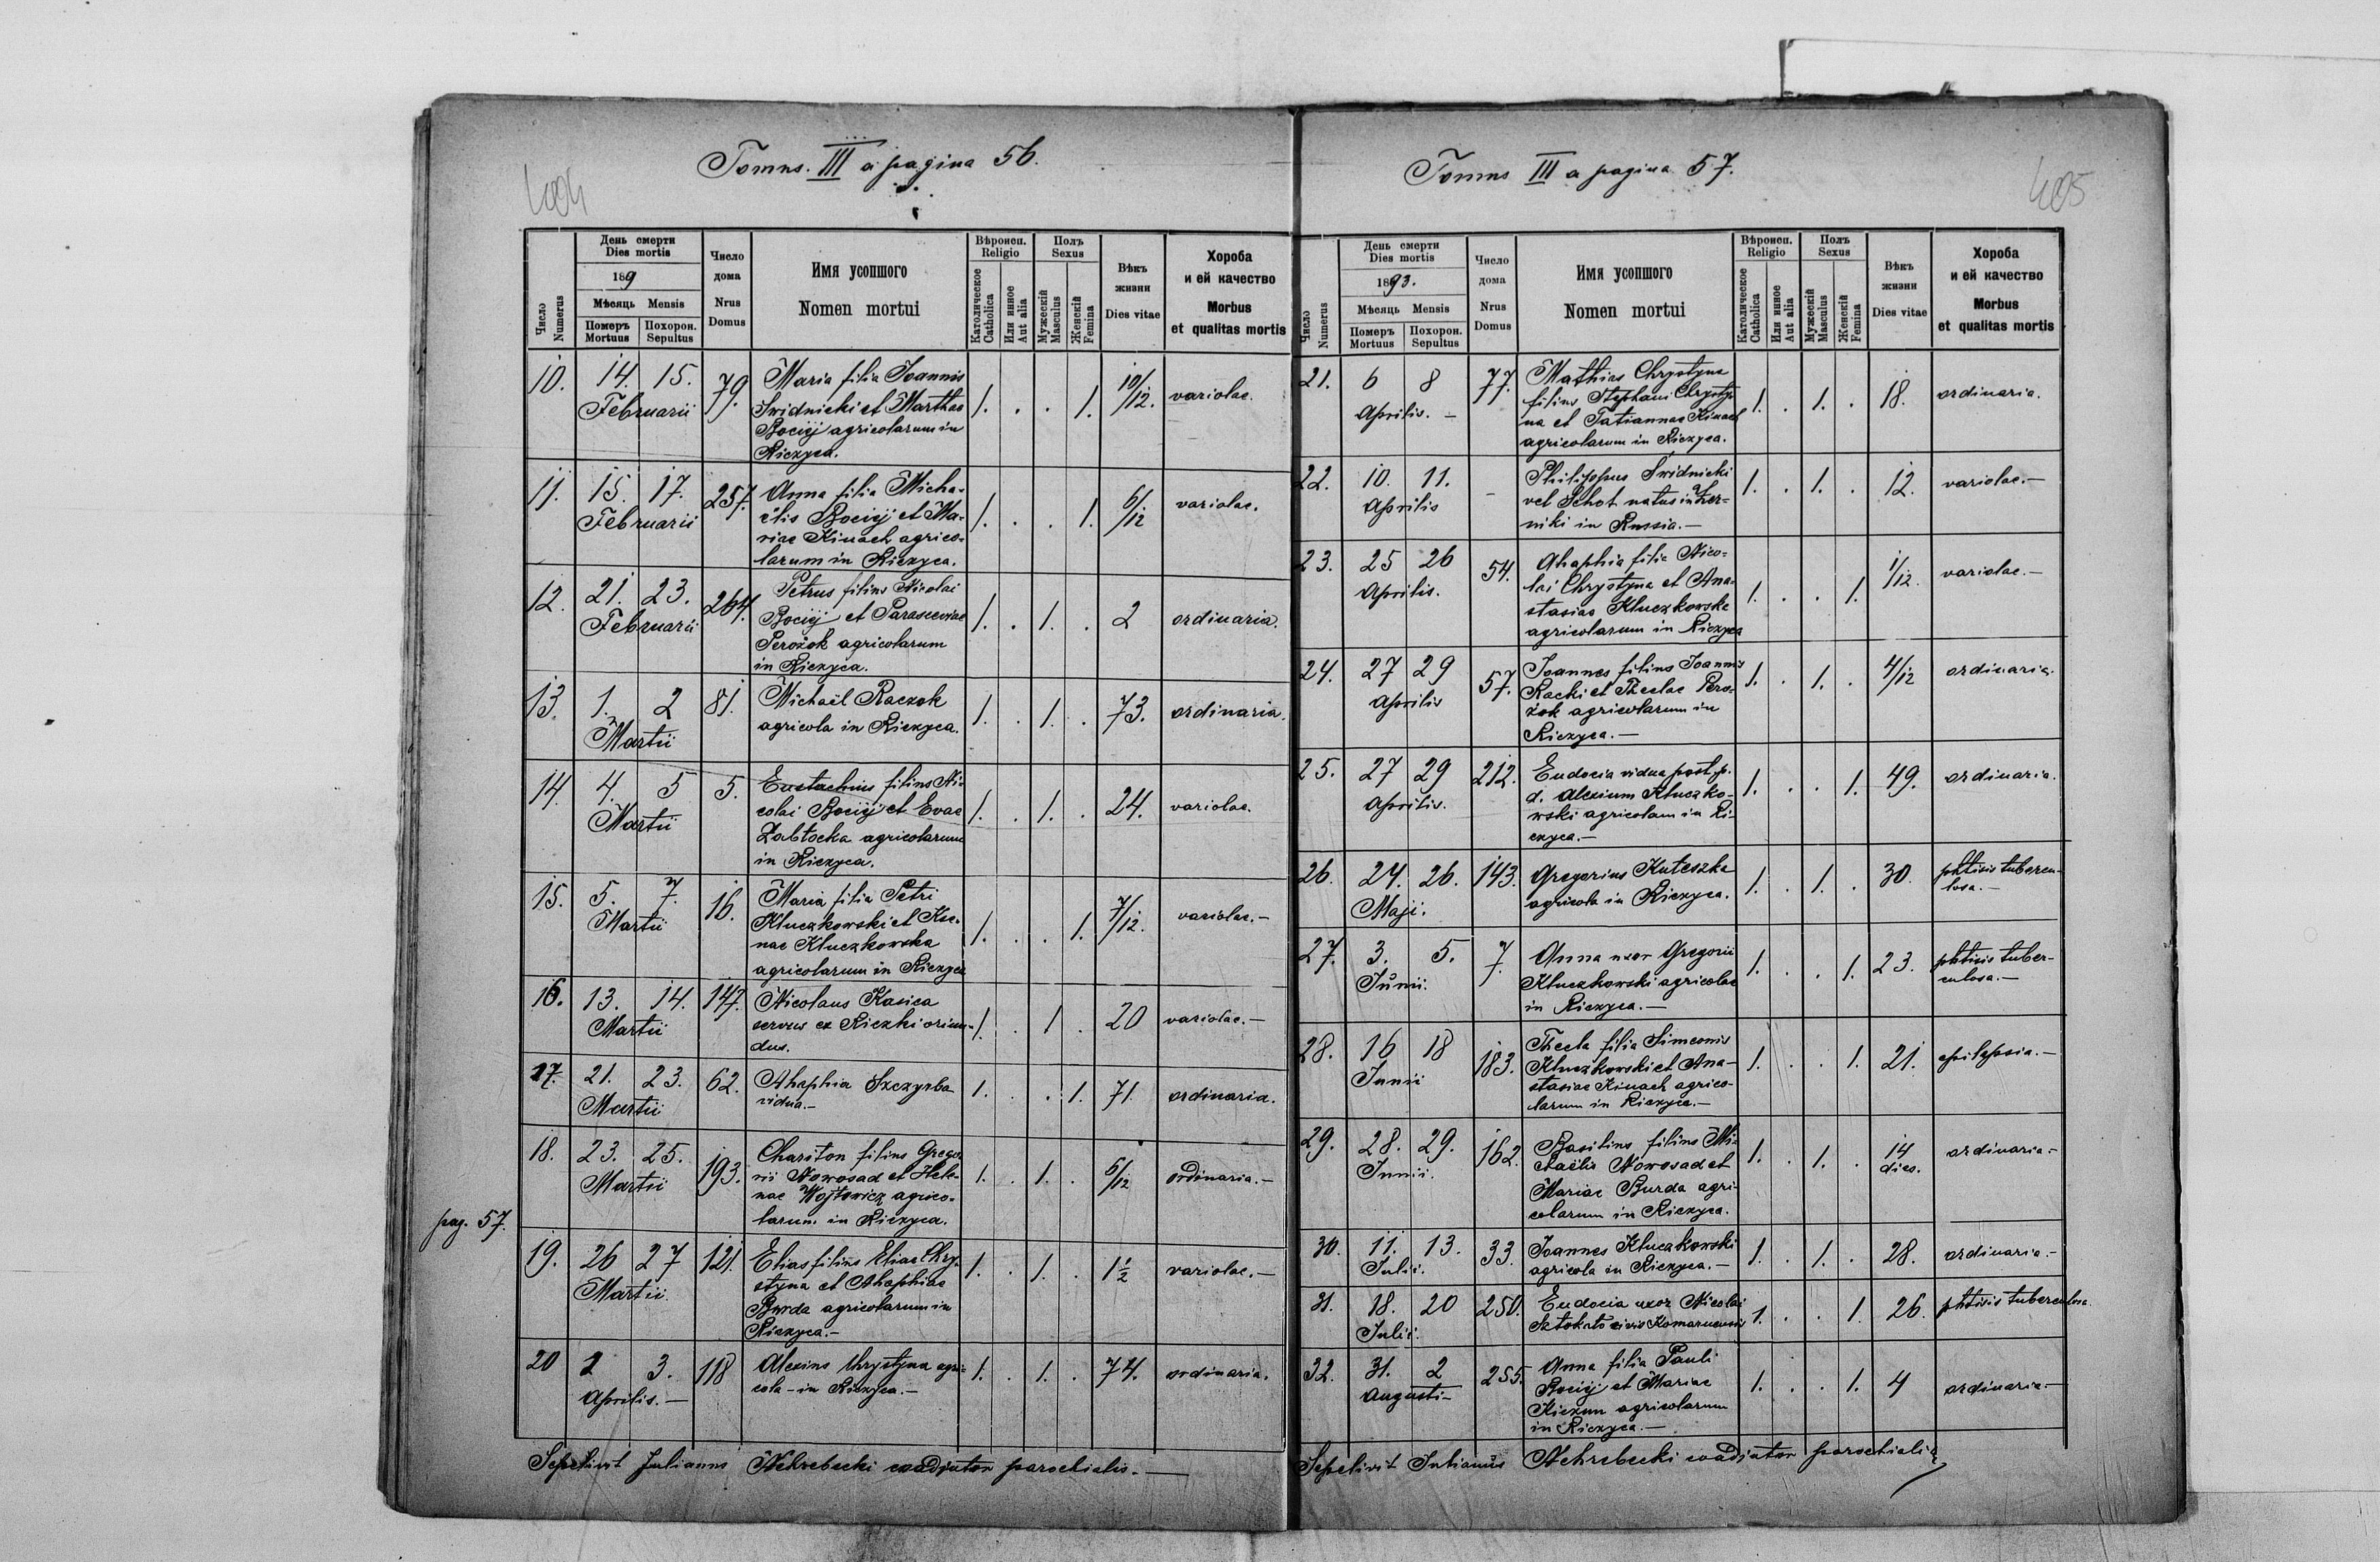 Tomus. III a pagina 56.
404
Число
Numerus
День смерти
Dies mortis
189
Мѣсяць Mensis
Померъ
Mortuus
Похорон.
Sepultus
Число
дома
Nrus
Domus
Имя усопшого
Nomen mortui
Вѣроисп.
Religio
Католическое
Catholica
Или инное
Aut alia
Полъ
Sexus
Мужескій
Masculus
Женскій
Femina
Вѣкъ
жизни
Dies vitae
Хороба
и ей качество
Morbus
et qualitas mortis
10. 14. 15. Februarii 79.
Maria filia Joannis
Swidnicki et Marthae
Bociij agricolarum in
Riczyca.
1. . . 1. 10/12. variolae.
11. 15. 17. Februarii 257.
Anna filia Micha-
ëlis Bociij et Ma-
riae Kinach agrico-
larum in Riczyca.
1. . . 1. 6/12 variolae.
12. 21. 23. Februarii 264.
Petrus filius Nicolai
Bociij et Parasceviae
Perożok agricolarum
in Riczyca.
1. . 1. . 2 ordinaria.
13. 1. 2 Martii 81.
Michaël Raczok
agricola in Riczyca.
1. . 1. . 73. ordinaria.
14. 4. 5 Martii 5.
Eustachius filius Ni-
colai Bociij et Evae
Zabłocka agricolarum
in Riczyca.
1. . 1. . 24. variolae.
15. 5. 7. Martii 16.
Maria filia Petri
Kluczkowski et Xe-
nae Kluczkowska
agricolarum in Riczyca
1. . . 1. 7/12. variolae.-
16. 13. 14. Martii 147.
Nicolaus Kasica
servus ex Riczki oriun-
dus.
1. . 1 . 20 variolae.-
17. 21. 23. Martii 62.
Ahaphia Szczyrba
vidua.-
1. . . 1. 71. ordinaria.
18. 23. 25. Martii 193.
Chariton filius Grego-
rii Nowosad et Hele-
nae Wojtowicz agrico-
larum in Riczyca.
1. . 1. . 6/12 ordinaria.-
pag. 57.
19. 26 27 Martii. 121.
Elias filius Eliae Chry-
styna et Ahaphiae
Burda agricolarum in
Riczyca.-
1. . 1. . 1 1/2 variolae.-
20 2 3. Aprilis.- 118
Alexius Chrystyna agri-
cola - in Riczyca.-
1. . 1. . 74. ordinaria.
Sepelivit Julianus Nehrebecki coadjutor parochialis.-
Tomus III a pagina 57.
405
Число
Numerus
День смерти
Dies mortis
1893.
Мѣсяць Mensis
Померъ
Mortuus
Похорон.
Sepultus
Число
дома
Nrus
Domus
Имя усопшого
Nomen mortui
Вѣроисп.
Religio
Католическое
Catholica
Или инное
Aut alia
Полъ
Sexus
Мужескій
Masculus
Женскій
Femina
Вѣкъ
жизни
Dies vitae
Хороба
и ей качество
Morbus
et qualitas mortis
21. 6 8 Aprilis.- 77.
Mathias Chrystyna
filius Stephani Chrysty-
na et Tatiannae Kinach
agricolarum in Riczyca.
1. . 1. . 18. ordinaria.
22. 10. 11. Aprilis -
Philippus Swidnicki
vel Schot natus in
niki in Russia.-
1. . 1. . 12. variolae.-
23. 25 26 Aprilis. 54.
Ahaphia filia Nico-
lai Chrystyna et Ana-
stasiae Kluczkowska
agricolarum in Riczyca
1. . . 1. 1/12. variolae.-
24. 27 29 Aprilis 57.
Joannes filius Joannis
Racki et Theclae Pero-
żok agricolarum in
Riczyca.-
1. . 1. . 4/12 ordinaria.
25. 27 29 Aprilis. 212.
Eudocia vidua post p.
d. Alexium Kluczko-
wski agricolam in Ri-
czyca.-
1. . . 1. 49. ordinaria.
26. 24. 26. Maji. 143.
Gregorius Kuteszka
agricola in Riczyca.
1. . 1. . 30. phtisis tubercu-
losa.-
27. 3. 5. Junii. 7.
Anna uxor Gregorii
Kluczkowski agricolae
in Riczyca.-
1. . . 1. 23. phtisis tuber-
culosa.-
28. 16 18 Junii 183.
Thecla filia Simeonis
Kluczkowski et Ana-
stasiae Kinach agrico-
larum in Riczyca.-
1. . . 1. 21. epilepsia.-
29. 28. 29. Junii. 162.
Basilius filius Mi-
chaëlis Nowosad et
Mariae Burda agri-
colarum in Riczyca.
1. . 1. . 14 dies. ordinaria.-
30. 11. 13. Julii. 33.
Joannes Kluczkowski
agricola in Riczyca.-
1. . 1. . 28. ordinaria.-
31. 18. 20 Julii. 250.
Eudocia uxor Nicolai
civis Komarnensis
1. . . 1. 26. phtisis tuberculosa.
32. 31. 2 Augusti- 255.
Anna filia Pauli
Bociij et Mariae
Kiczun agricolarum
in Riczyca.-
1. . . 1. 4 ordinaria.-
Sepelivit Julianus Nehrebecki coadjutor parochialis